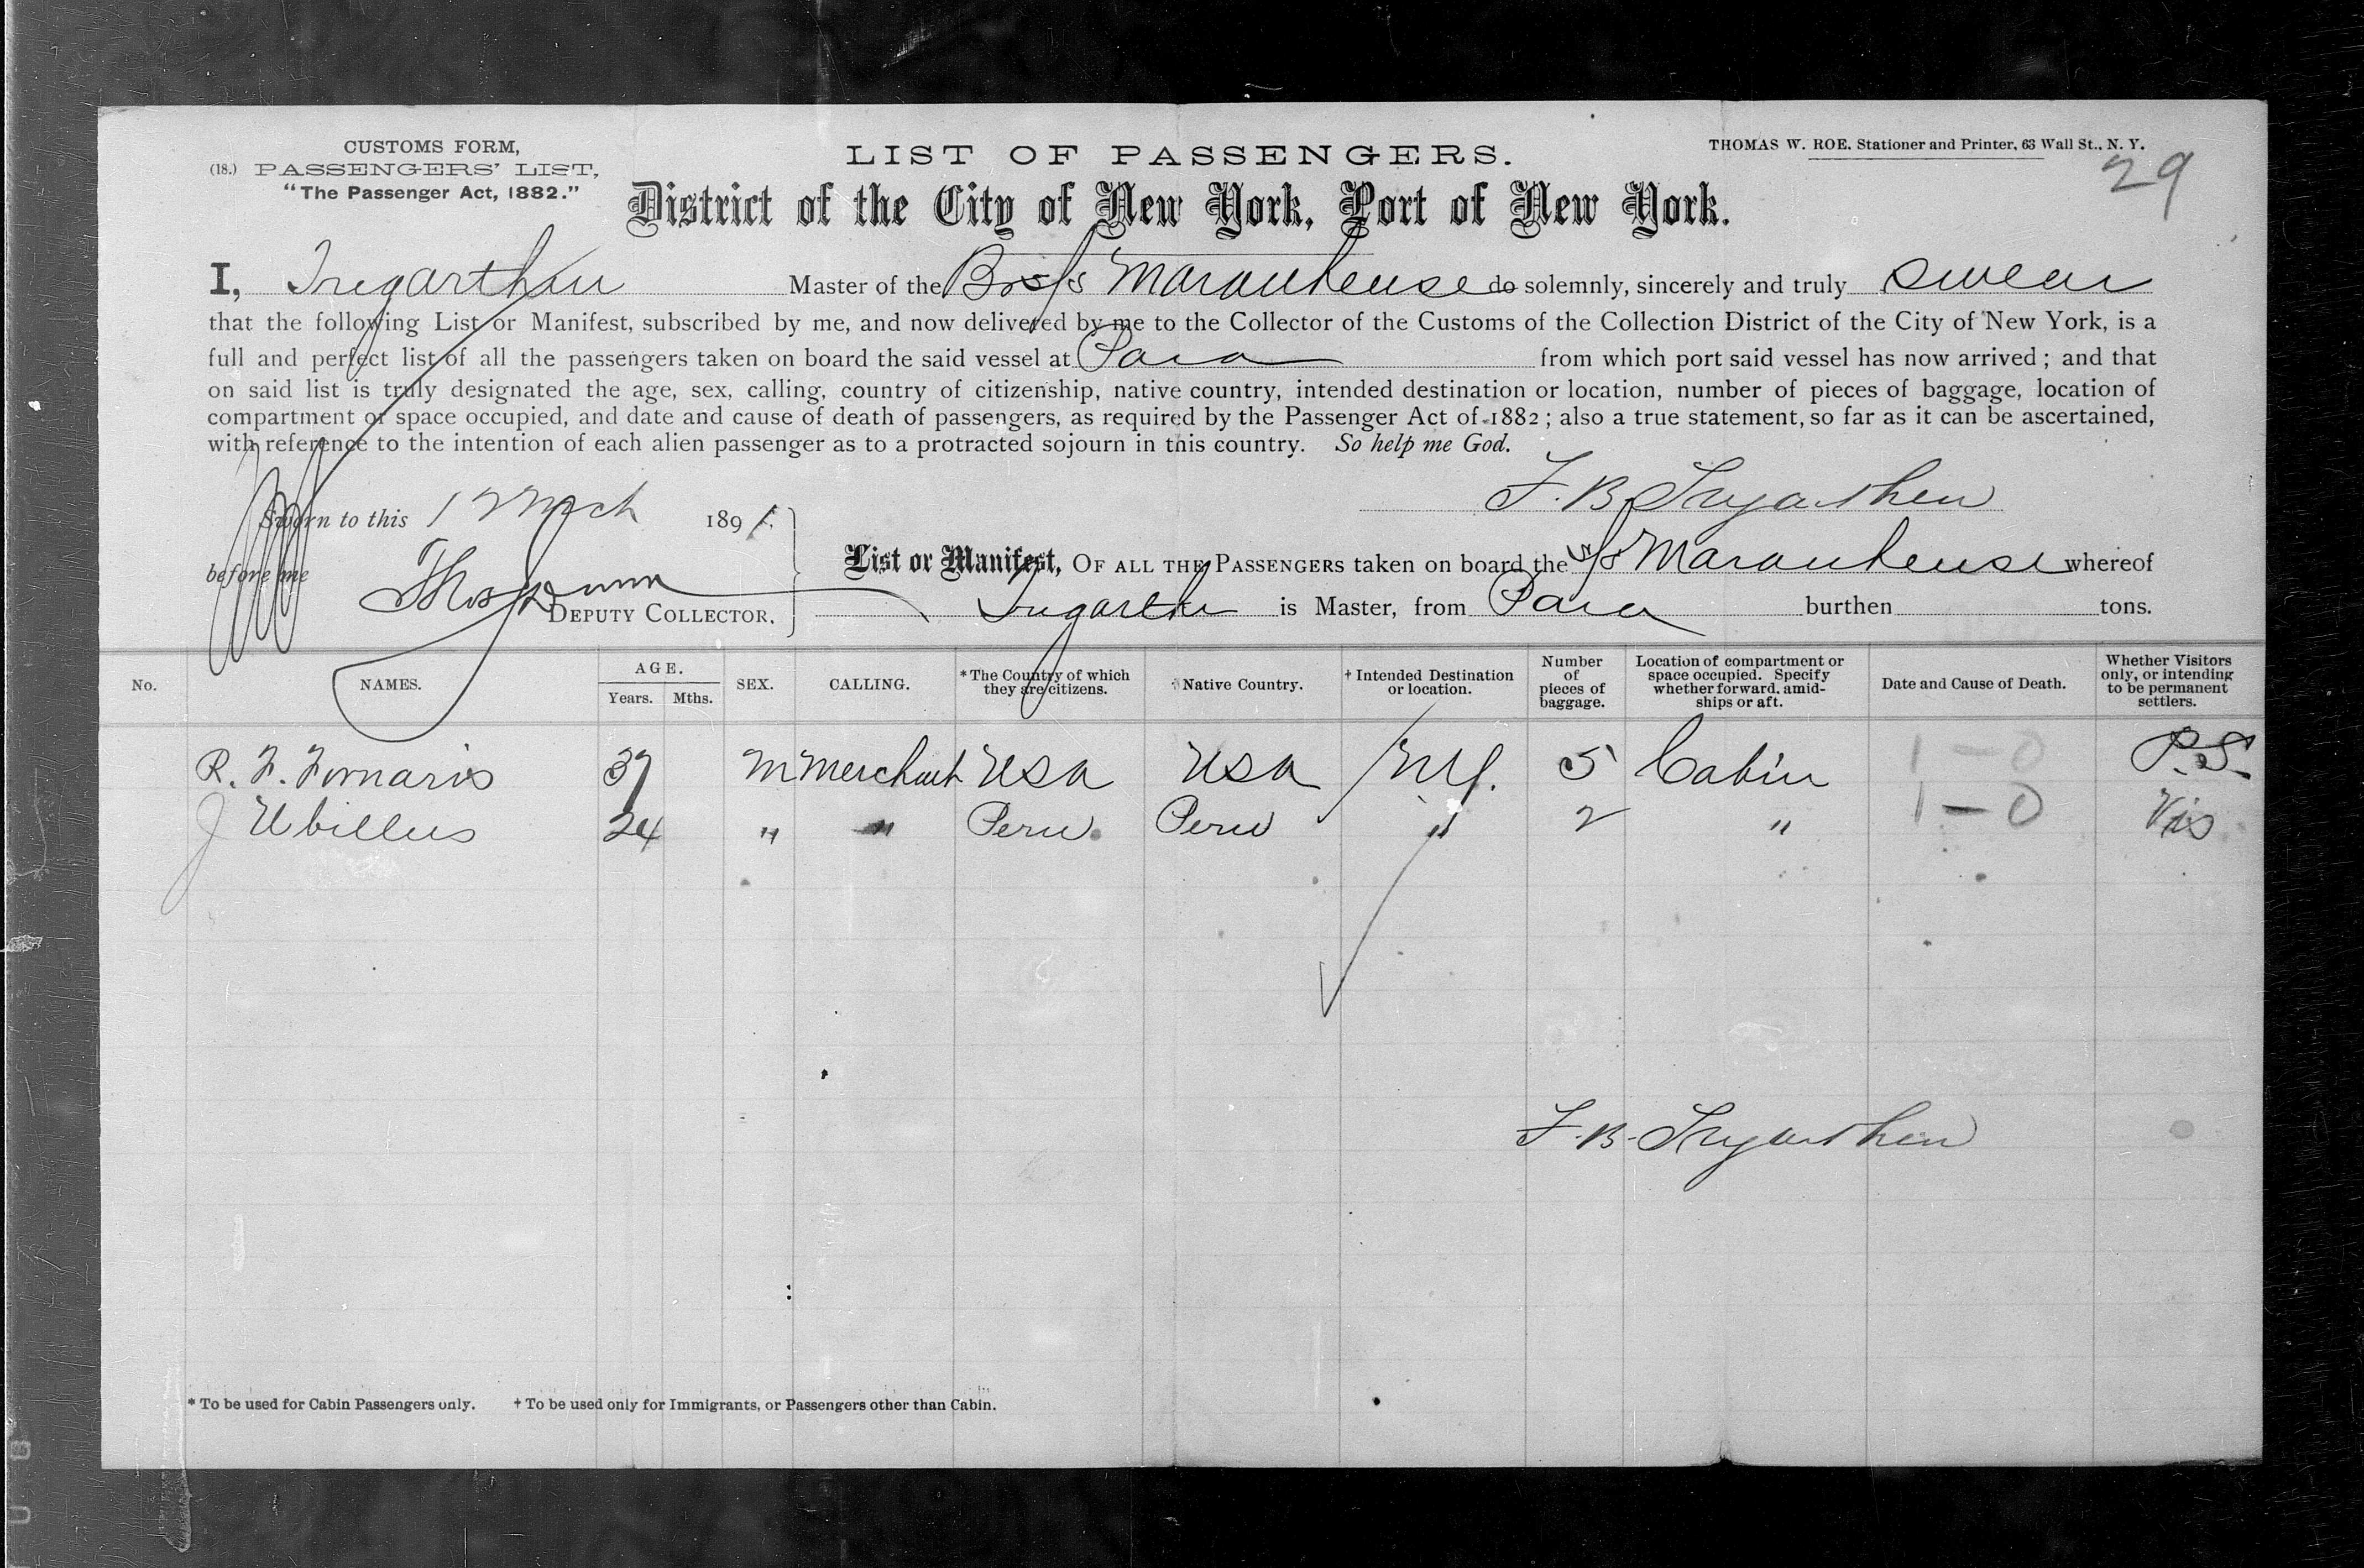 CUSTOMS FORM,
(18.) PASSENGERS' LIST,
"The Passenger Act, 1882."
LIST OF PASSENGERS.
THOMAS W. ROE. Stationer and Printer, 63 Wall St., N. Y.
29
District of the City of New York, Port of New York.
I, Tregarthen Master of the Br s/s Maranhense do solemnly, sincerely and truly swear
that the following List or Manifest, subscribed by me, and now delivered by me to the Collector of the Customs of the Collection District of the City of New York, is a
full and perfect list of all the passengers taken on board the said vessel at Para from which port said vessel has now arrived; and that
on said list is truly designated the age, sex, calling, country of citizenship, native country, intended destination or location, number of pieces of baggage, location of
compartment or space occupied, and date and cause of death of passengers, as required by the Passenger Act of 1882; also a true statement, so far as it can be ascertained,
with reference to the intention of each alien passenger as to a protracted sojourn in this country. So help me God.
F. B. Tregarthen
Sworn to this 12 Mch 1891
before me
DEPUTY COLLECTOR.
List or Manifest, OF ALL THE PASSENGERS taken on board the s/s Maranhense whereof
Tregarthen is Master, from Para burthen tons.
No. NAMES. AGE. Years. Mths. SEX. CALLING. * The Country of which they are citizens. Native Country. † Intended Destination or location. Number of pieces of baggage. Location of compartment or space occupied. Specify whether forward, amid-ships or aft. Date and Cause of Death. Whether Visitors only, or intending to be permanent settlers.
R. F. Fornaris 37 M Merchant USA USA NY. 5 Cabin 1-0 P.S.
J Ubillus 24 " " Peru Peru " 2 " 1-0 Vis
F. B. Tregarthen
* To be used for Cabin Passengers only. † To be used only for Immigrants, or Passengers other than Cabin.